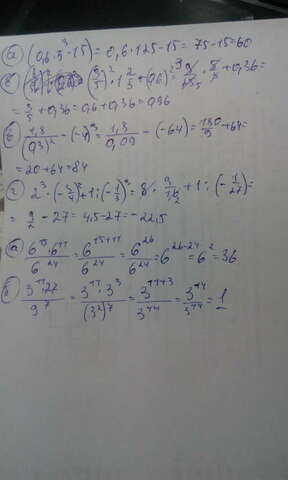 а) (0,6·5³-15)=0,6·125-15=75-15=60
б) (3/5)²·1 2/3+(0,6)²=9/25·5/3+0,36=
=3/5+0,36=0,6+0,36=0,96
в) 1,8/(0,3)²-(-4)³=1,8/0,09-(-64)=180/9+64=
=20+64=84
г) 2³·(-3/4)²+1:(-1/3)³=8·9/16+1:(-1/27)=
=9/2-27=4,5-27=-22,5
а) 6¹⁵·6¹¹/6²⁴=6¹⁵⁺¹¹/6²⁴=6²⁶/6²⁴=6²⁶⁻²⁴=6²=36
б) 3¹¹·27/9⁷=3¹¹·3³/(3²)⁷=3¹¹⁺³/3¹⁴=3¹⁴/3¹⁴=1